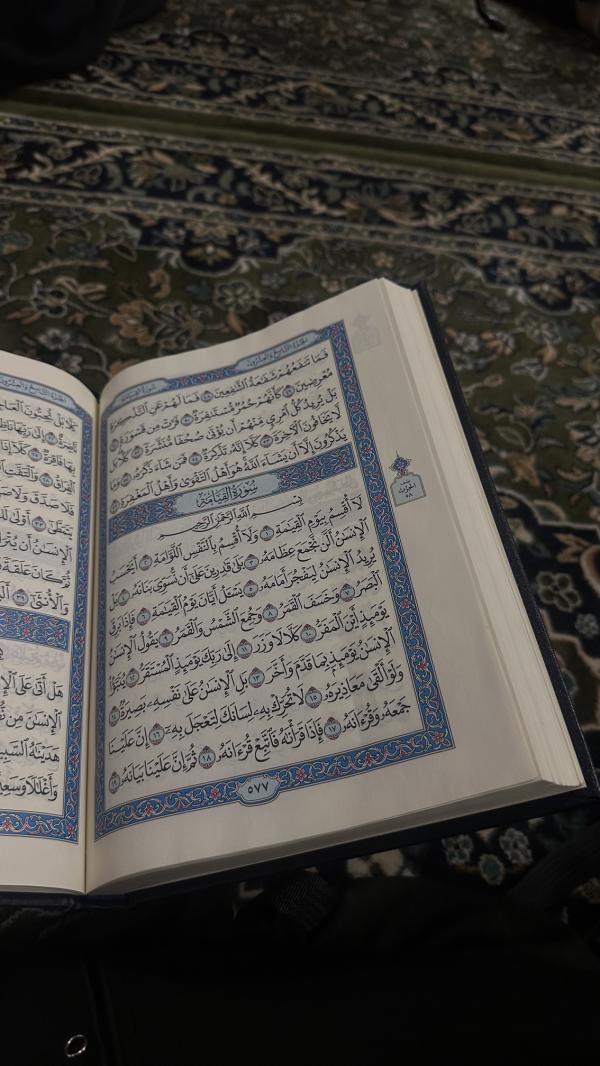 الجزء التاسع والعشرون
فَمَا تَنفَعُهُمْ شَفَٰعَةُ ٱلشَّٰفِعِينَ ٤٨ فَمَا لَهُمْ عَنِ ٱلتَّذْكِرَةِ
مُعْرِضِينَ ٤٩ كَأَنَّهُمْ حُمُرٌ مُّسْتَنفِرَةٌ ٥٠ فَرَّتْ مِن قَسْوَرَةٍ ٥١
بَلْ يُرِيدُ كُلُّ ٱمْرِئٍ مِّنْهُمْ أَن يُؤْتَىٰ صُحُفًا مُّنَشَّرَةً ٥٢ كَلَّا بَل
لَّا يَخَافُونَ ٱلْءَاخِرَةَ ٥٣ كَلَّا إِنَّهُۥ تَذْكِرَةٌ ٥٤ فَمَن شَآءَ ذَكَرَهُۥ ٥٥ وَمَا
يَذْكُرُونَ إِلَّا أَن يَشَآءَ ٱللَّهُ هُوَ أَهْلُ ٱلتَّقْوَىٰ وَأَهْلُ ٱلْمَغْفِرَةِ ٥٦
سُورَةُ القِيَامَةِ
بِسْمِ ٱللَّهِ ٱلرَّحْمَٰنِ ٱلرَّحِيمِ
لَآ أُقْسِمُ بِيَوْمِ ٱلْقِيَٰمَةِ ١ وَلَآ أُقْسِمُ بِٱلنَّفْسِ ٱللَّوَّامَةِ ٢ أَيَحْسَبُ
ٱلْإِنسَٰنُ أَلَّن نَّجْمَعَ عِظَامَهُۥ ٣ بَلَىٰ قَٰدِرِينَ عَلَىٰٓ أَن نُّسَوِّيَ بَنَانَهُۥ ٤ بَلْ
يُرِيدُ ٱلْإِنسَٰنُ لِيَفْجُرَ أَمَامَهُۥ ٥ يَسْـَٔلُ أَيَّانَ يَوْمُ ٱلْقِيَٰمَةِ ٦ فَإِذَا بَرِقَ
ٱلْبَصَرُ ٧ وَخَسَفَ ٱلْقَمَرُ ٨ وَجُمِعَ ٱلشَّمْسُ وَٱلْقَمَرُ ٩ يَقُولُ ٱلْإِنسَٰنُ
يَوْمَئِذٍ أَيْنَ ٱلْمَفَرُّ ١٠ كَلَّا لَا وَزَرَ ١١ إِلَىٰ رَبِّكَ يَوْمَئِذٍ ٱلْمُسْتَقَرُّ ١٢ يُنَبَّؤُا۟
ٱلْإِنسَٰنُ يَوْمَئِذٍۭ بِمَا قَدَّمَ وَأَخَّرَ ١٣ بَلِ ٱلْإِنسَٰنُ عَلَىٰ نَفْسِهِۦ بَصِيرَةٌ ١٤
وَلَوْ أَلْقَىٰ مَعَاذِيرَهُۥ ١٥ لَا تُحَرِّكْ بِهِۦ لِسَانَكَ لِتَعْجَلَ بِهِۦٓ ١٦ إِنَّ عَلَيْنَا
جَمْعَهُۥ وَقُرْءَانَهُۥ ١٧ فَإِذَا قَرَأْنَٰهُ فَٱتَّبِعْ قُرْءَانَهُۥ ١٨ ثُمَّ إِنَّ عَلَيْنَا بَيَانَهُۥ ١٩
٥٧٧
الحزب
٥٨
كَلَّا بَلْ تُحِبُّونَ
إِلَىٰ رَبِّهَا
بِهَا فَاقِرَةٌ ٢٥ كَلَّآ إِذَا
ٱلْفِرَاقُ ٢٨
فَلَا صَدَّقَ وَلَا
يَتَمَطَّىٰ ٣٣ أَوْلَىٰ
ٱلْإِنسَٰنُ أَن
كَانَ عَلَقَةً
وَٱلْأُنثَىٰٓ ٣٩
هَلْ أَتَىٰ عَلَى
ٱلْإِنسَٰنَ مِن
هَدَيْنَٰهُ ٱلسَّبِيلَ
وَأَغْلَٰلًا